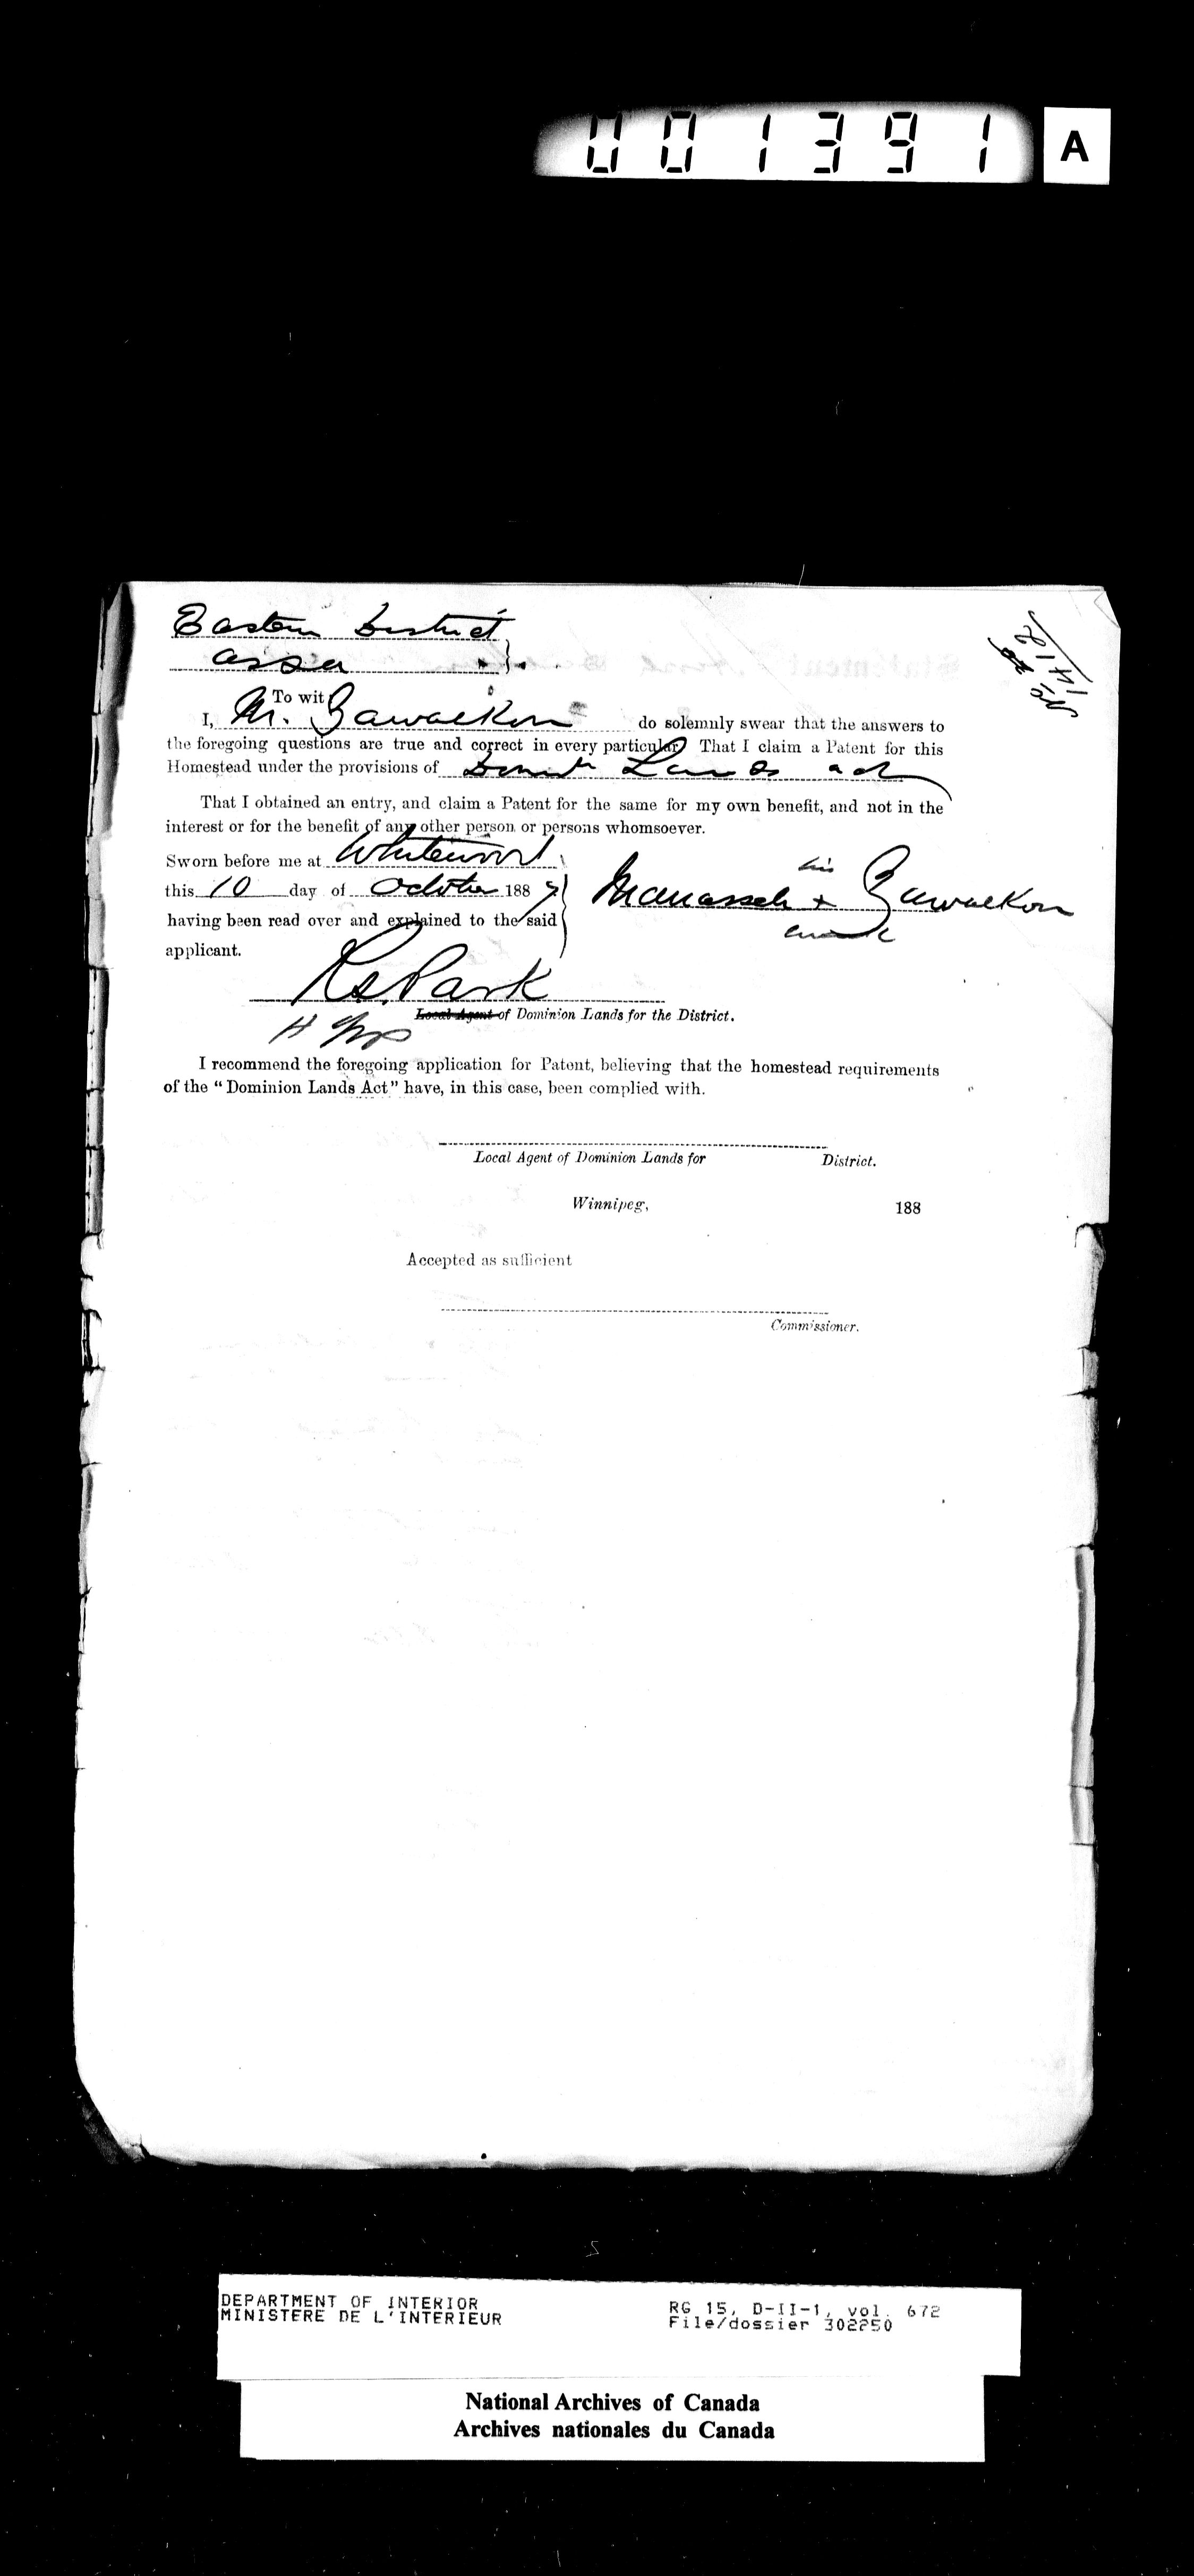 001391 A
Eastern District
Assa
To wit
I, M. Zawalkon do solemnly swear that the answers to
the foregoing questions are true and correct in every particular. That I claim a Patent for this
Homestead under the provisions of Lands act
That I obtained an entry, and claim a Patent for the same for my own benefit, and not in the
interest or for the benefit of any other person or persons whomsoever.
Sworn before me at Whitewood
this 10 day of October 1887
having been read over and explained to the said
applicant.
his
Manasseh + Zawalkon
mark
R.S. Park
Local Agent of Dominion Lands for the District.
I recommend the foregoing application for Patent, believing that the homestead requirements
of the “Dominion Lands Act” have, in this case, been complied with.
Local Agent of Dominion Lands for District.
Winnipeg, 188
Accepted as sufficient
Commissioner.
DEPARTMENT OF INTERIOR
MINISTERE DE L'INTERIEUR
RG 15, D-II-1, vol. 672
File/dossier 302250
National Archives of Canada
Archives nationales du Canada